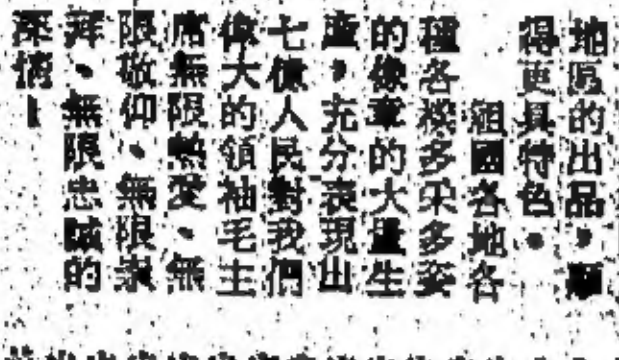 地區的出品，顯
得更具特色。
祖國各地各
種各樣多采多姿
的像章的大量生
產，充分表現出
七億人民對我們
偉大的領袖毛主
席無限熱愛、無
限敬仰、無限崇
拜、無限忠誠的
深情！